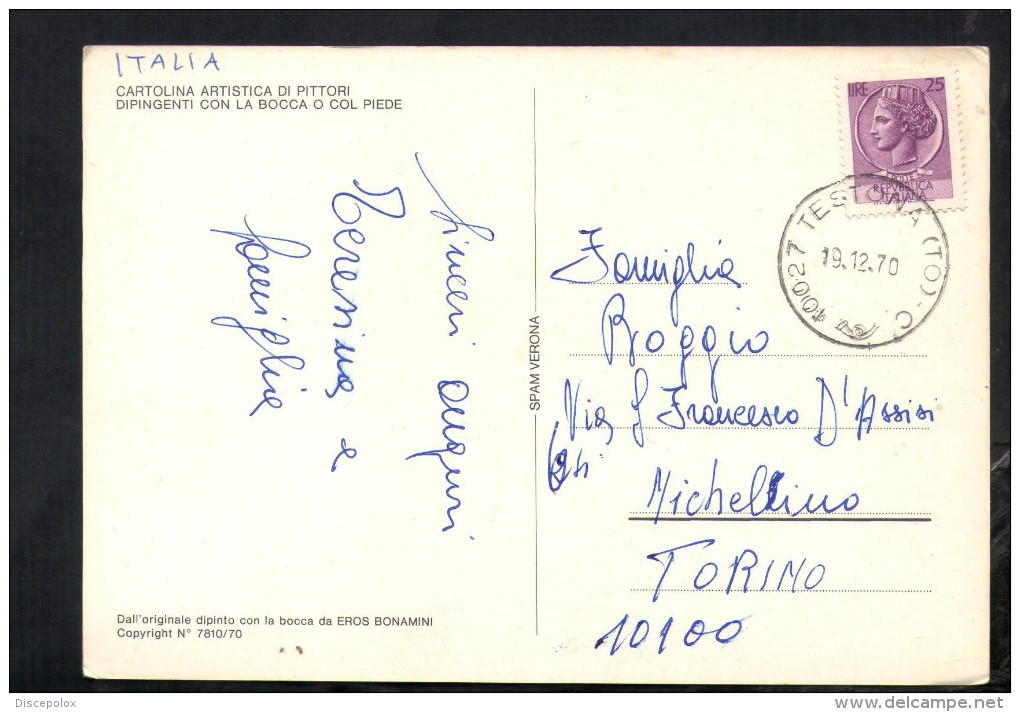 ITALIA
CARTOLINA ARTISTICA DI PITTORI
DIPINGENTI CON LA BOCCA O COL PIEDE
Sinceri auguri
Teresina e
famiglia
Dall'originale dipinto con la bocca da EROS BONAMINI
Copyright N° 7810/70
SPAM VERONA
LIRE 25
POSTE
REPVBBLICA
ITALIANA
10027 TESTONA (TO) - C
19.12.70
Famiglia
Boggio
Via S Francesco D'Assisi
Michellino
TORINO
10100
Discepolox
www.delcampe.net